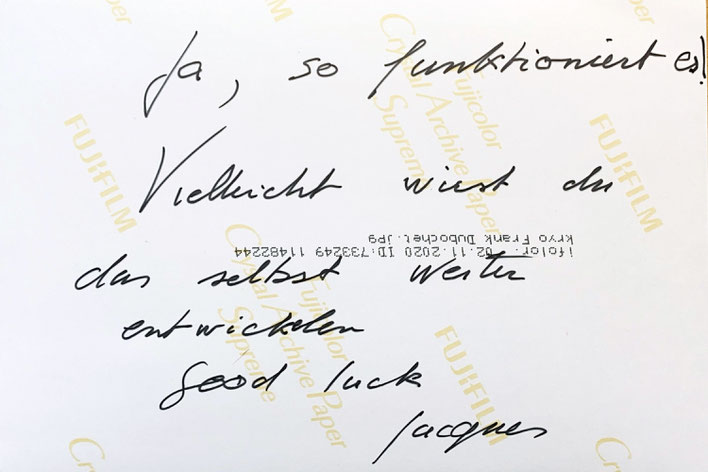 Ja, so funktioniert es!
Vielleicht wirst du
das selbst weiter
entwickelen
good luck
Jacques
ifolor. 02.11.2020 ID:733249 11482244
kryo Frank Dubochet.JPG
FUJIFILM
Fujicolor
Crystal Archive Paper
Supreme
FUJIFILM
Fujicolor
Crystal Archive Paper
Supreme
FUJIFILM